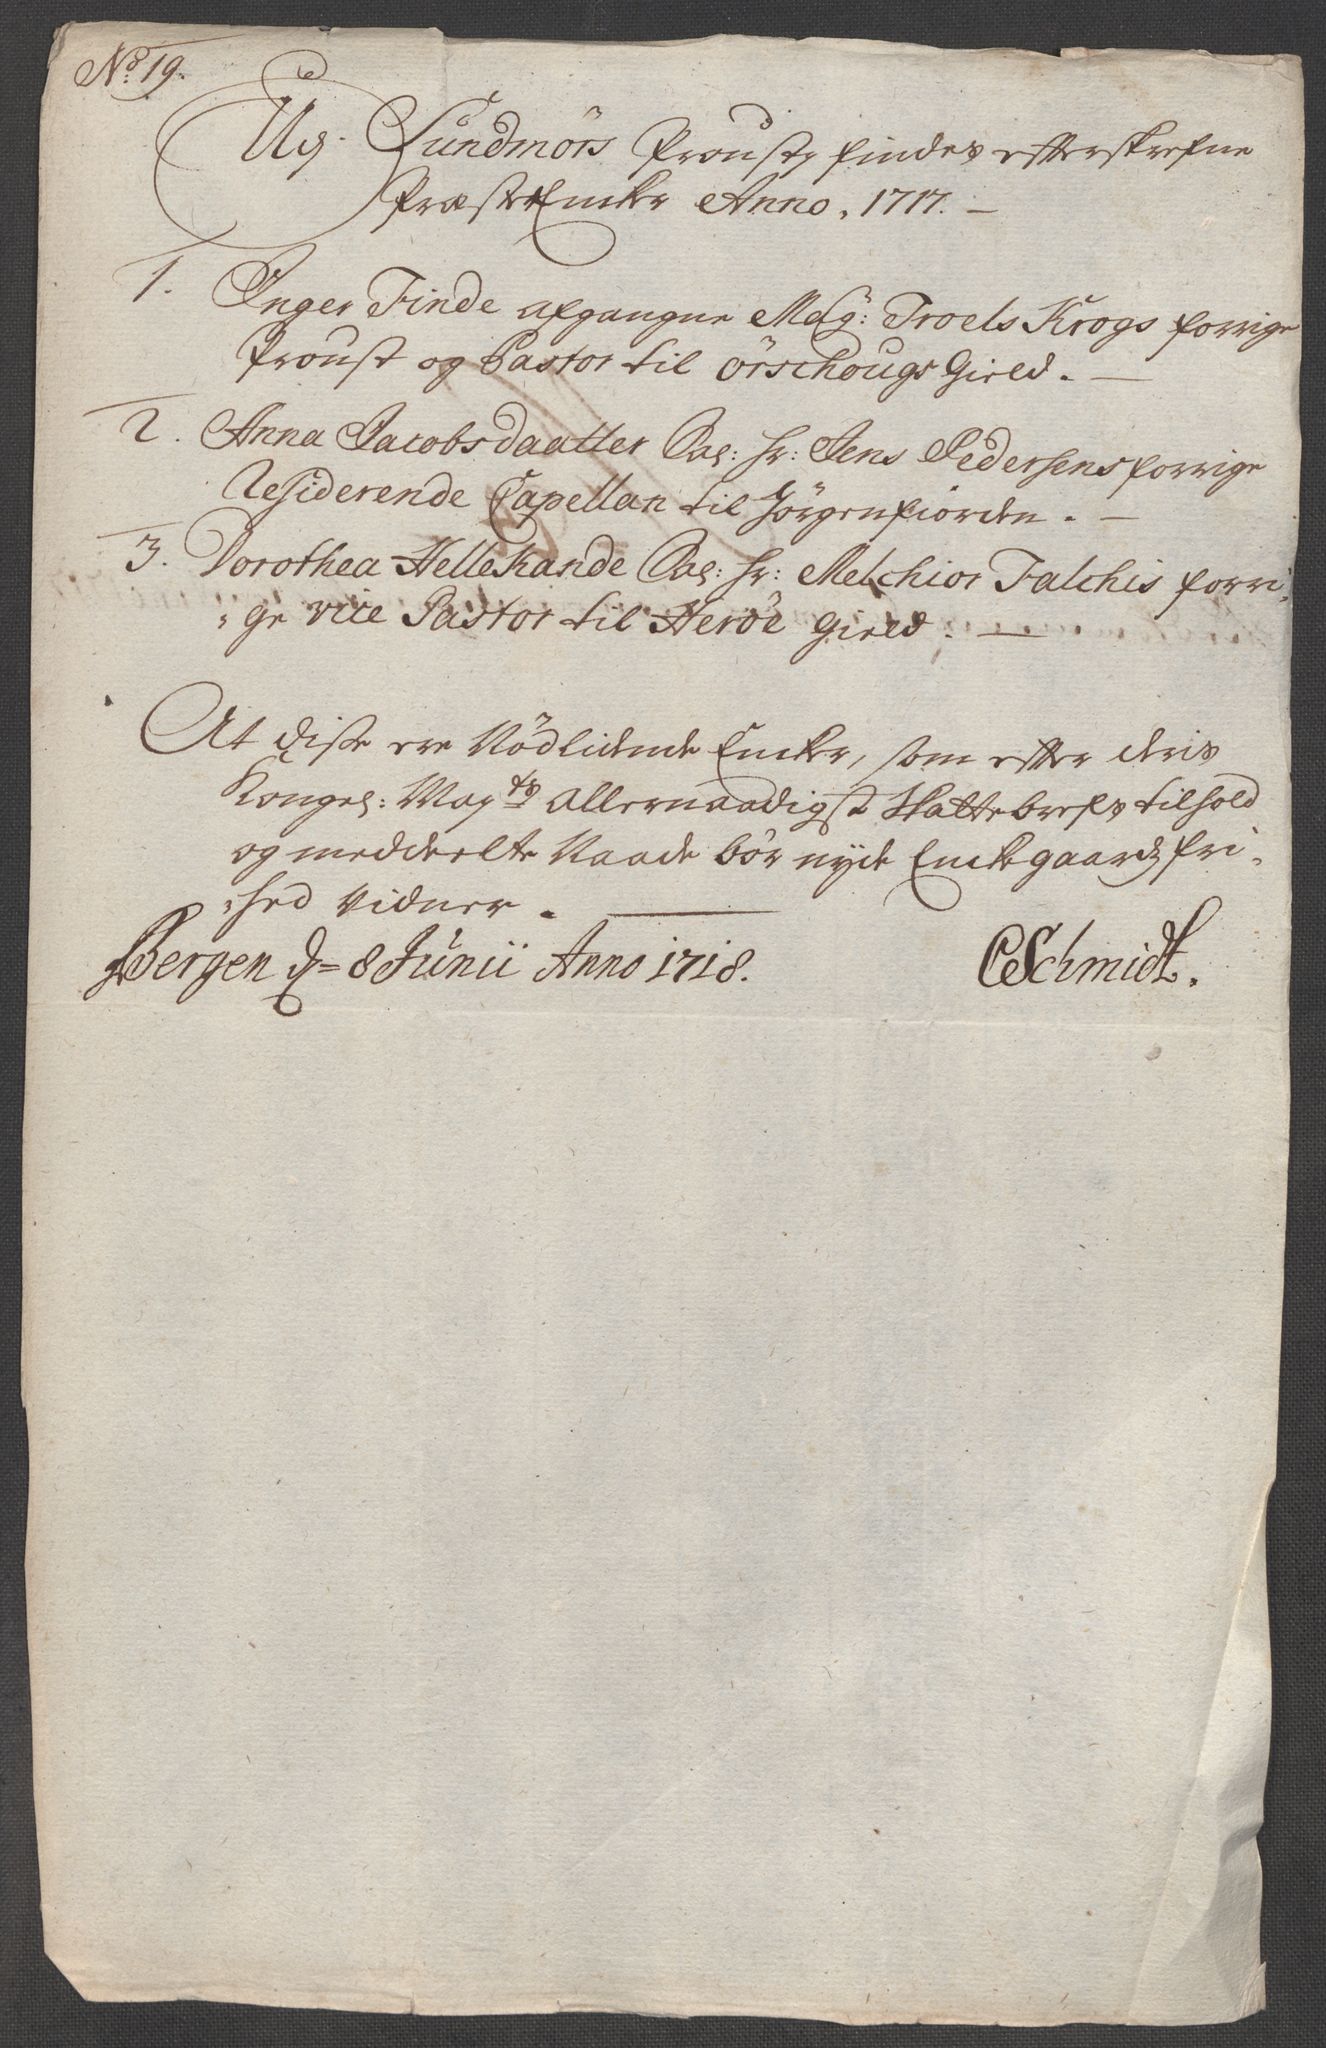 No: 19.
Udj Sundmörs Proustj findes efterskrefne
Præste Encker Anno. 1717. –
1. Inger Finde afgangne Mag: Troels Krogs forrige
Proust og Pastor til Örschougs Gield. –
2. Anna Jacobsdaatter Sal: Hr: Jens Pedersens forrige
Residerende Capellan til Jörgenfiorden. –
3. Dorothea Hellekande Sal: Hr: Melchior Falchis forri-
-ge vice Pastor til Heröe Gield. –
At disse ere Nödlidende Encker, som efter deris
Kongel: May:ts allernaadigst Skattebrefs tilhold
og meddeelte Naade bör nyde Enckegaards fri-
-hed vidner. –
Bergen d= 8 Junii Anno 1718. CSchmidt.